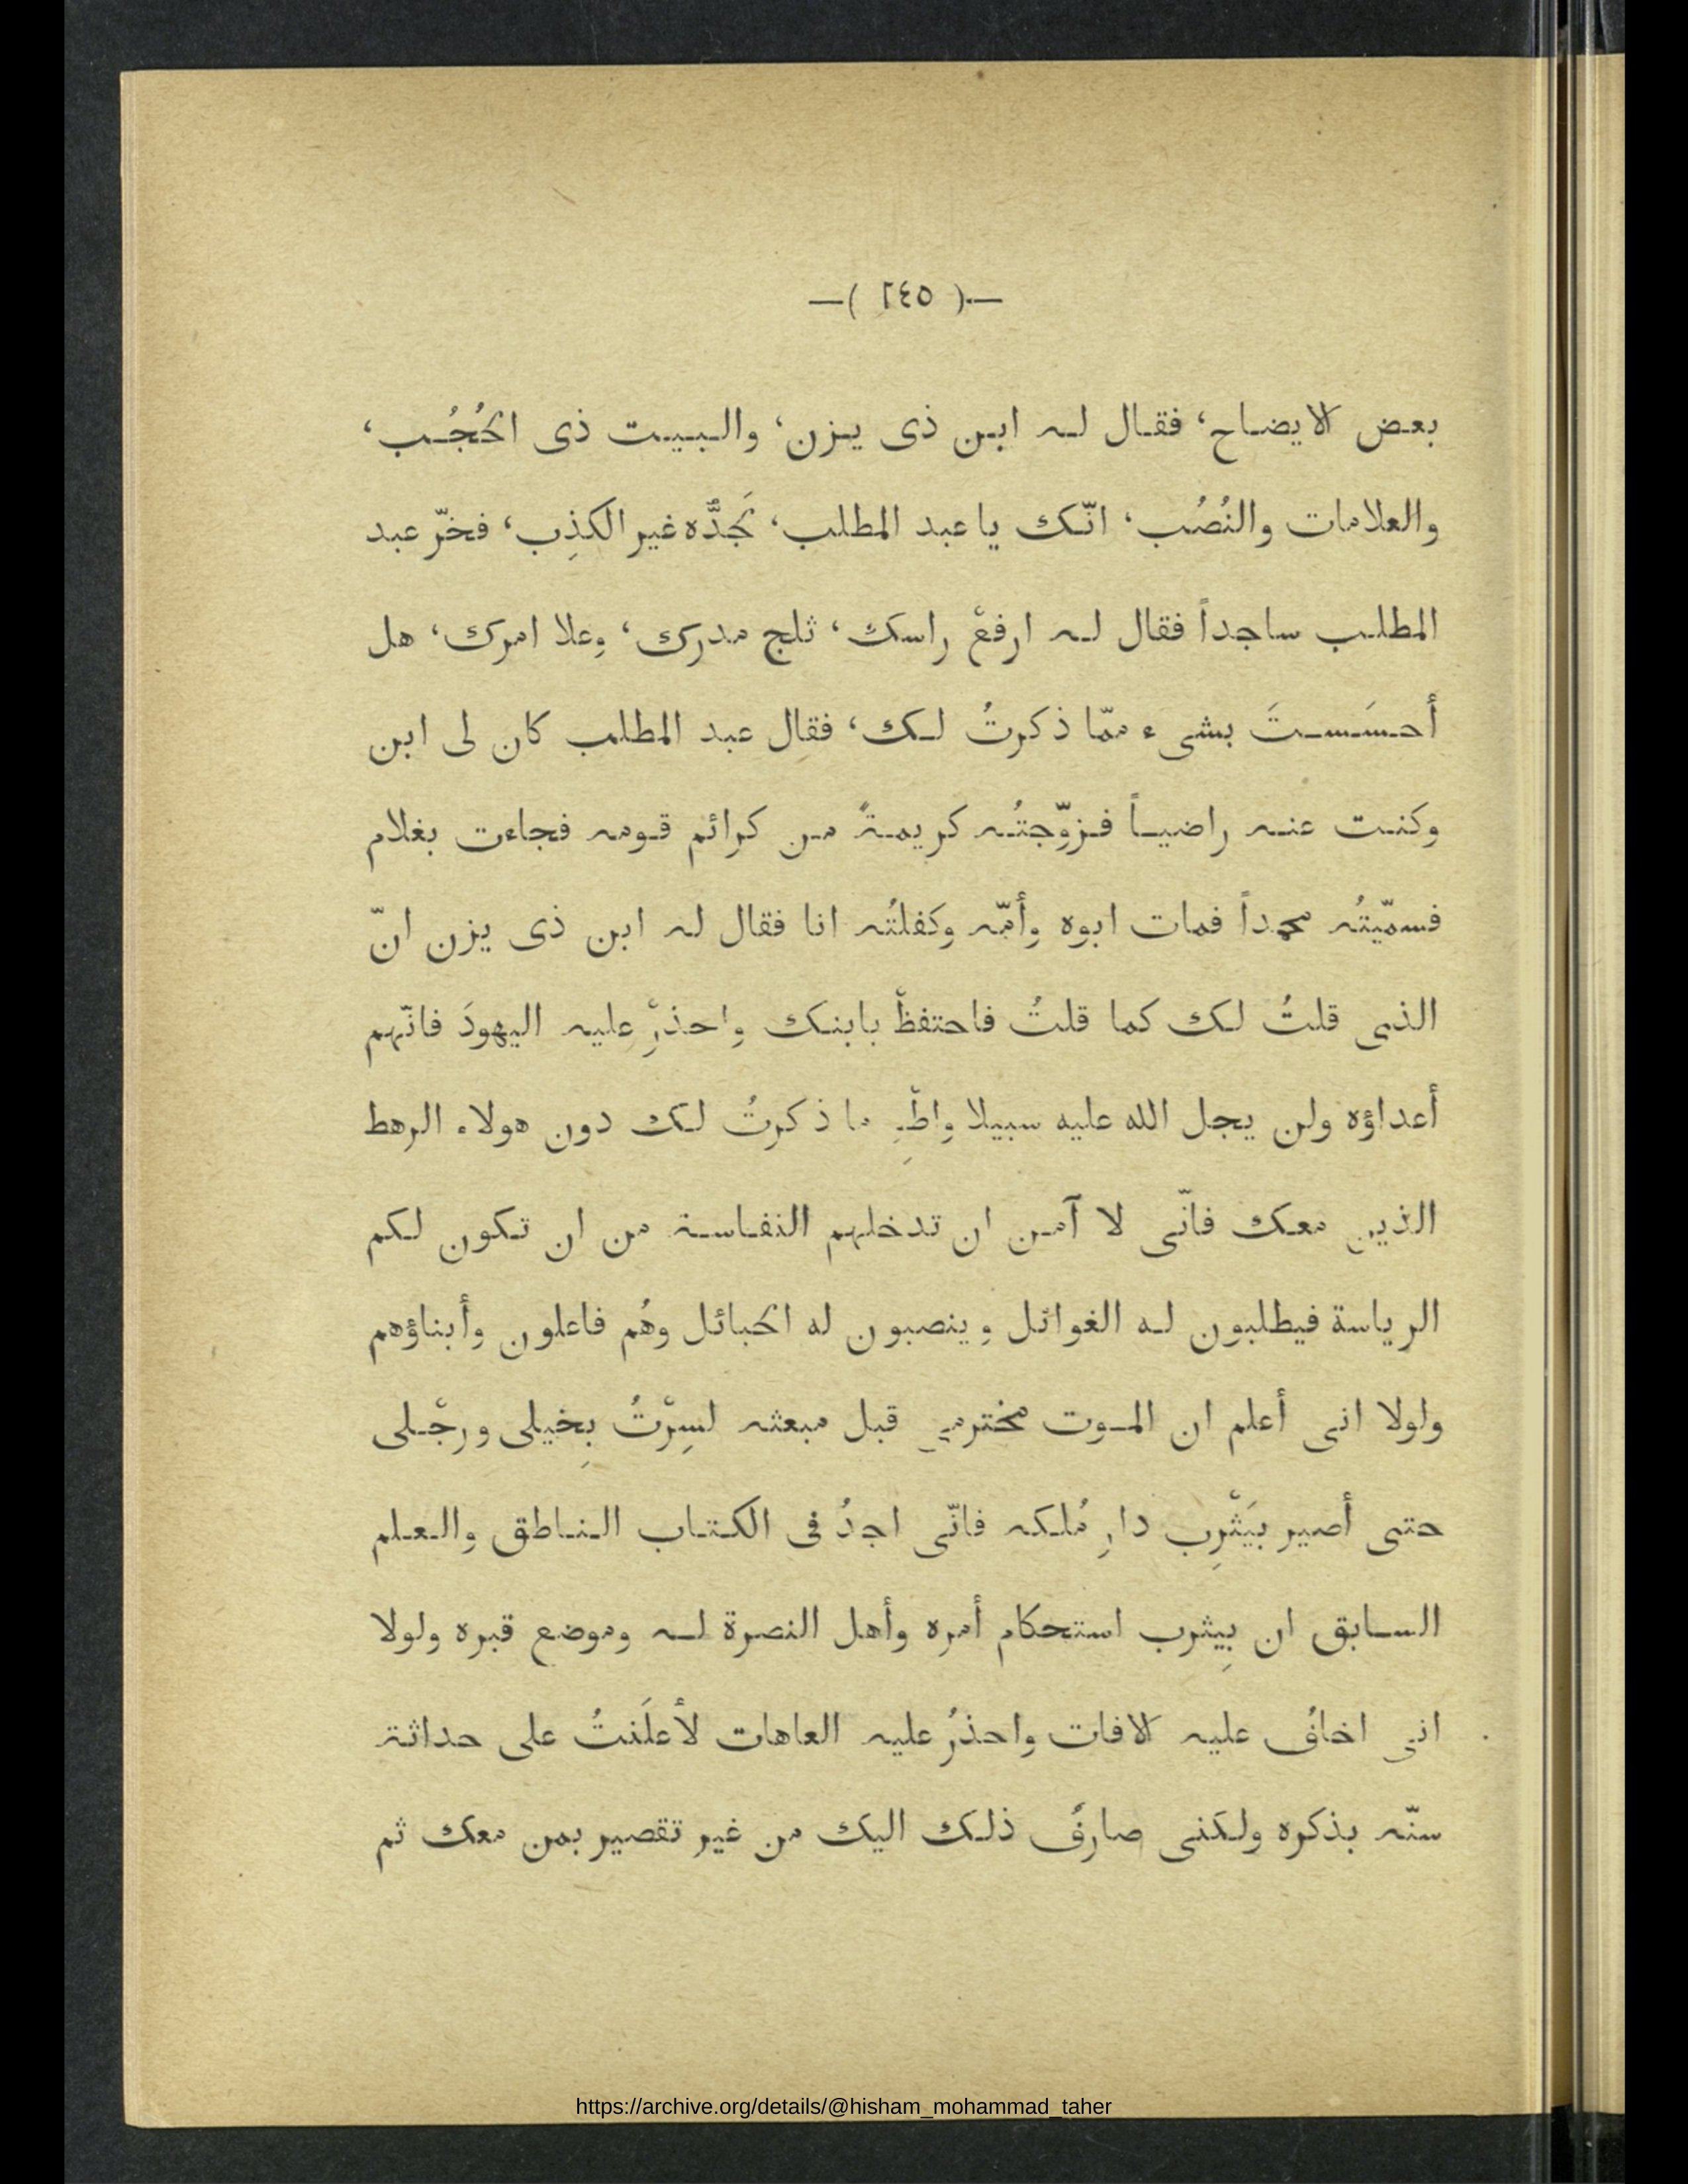 —( ٢٤٥ )—
بعض الايضاح، فقال له ابن ذى يزن، والبيت ذى الحُجُب،
والعلامات والنُصُب، انّك يا عبد المطلب، لَجَدُّه غير الكذِب، فخرّ عبد
المطلب ساجداً فقال له ارفعْ راسك، ثلج مدرك، وعلا امرك، هل
أحسَستَ بشىء ممّا ذكرتُ لك، فقال عبد المطلب كان لى ابن
وكنت عنه راضياً فزوّجتُه كريمةً من كرائم قومه فجاءت بغلام
فسمّيتُه محمداً فمات ابوه وأمّه وكفلتُه انا فقال له ابن ذى يزن انّ
الذى قلتُ لك كما قلتُ فاحتفظْ بابنك واحذرْ عليه اليهودَ فانّهم
أعداؤه ولن يجل الله عليه سبيلا واطْوِ ما ذكرتُ لك دون هولاء الرهط
الذين معك فانّى لا آمن ان تدخلهم النفاسة من ان تكون لكم
الرياسة فيطلبون له الغوائل وينصبون له الحبائل وهُم فاعلون وأبناؤهم
ولولا انى أعلم ان الموت مخترمى قبل مبعثه لسِرْتُ بِخيلى ورجْلى
حتى أصير بيَثْرِب دار مُلكه فانّى اجدُ فى الكتاب الناطق والعلم
السابق ان بِيثرب استحكام أمره وأهل النصرة له وموضع قبره ولولا
انى اخافُ عليه الافات واحذرُ عليه العاهات لأعلَنتُ على حداثة
سنّه بذكره ولكنى صارفٌ ذلك اليك من غير تقصير بمن معك ثم
https://archive.org/details/@hisham_mohammad_taher